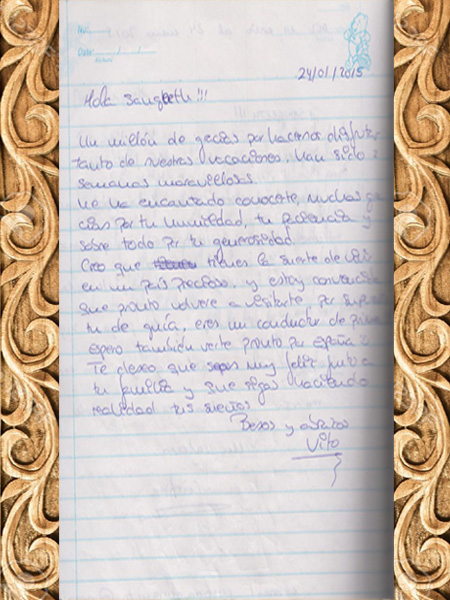 No.
Date
24/01/2015
Hola Sangeeth!!!
Un millón de gracias por hacernos disfrutar
tanto de nuestras vacaciones. Han sido
semanas maravillosas.
Me ha encantado conocerte, muchas gra
cias por tu humildad, tu paciencia y
sobre todo por tu generosidad.
Creo que tienes la suerte de vivir
en un país precioso, y estoy convencida
que pronto volvere a visitarte, por supues
tu de guía, eres un conductor de
espero también verte pronto por españa
Te deseo que seas muy feliz junto a
tu familia y que sigas haciendo
realidad tus sueños
Besos y abrazos